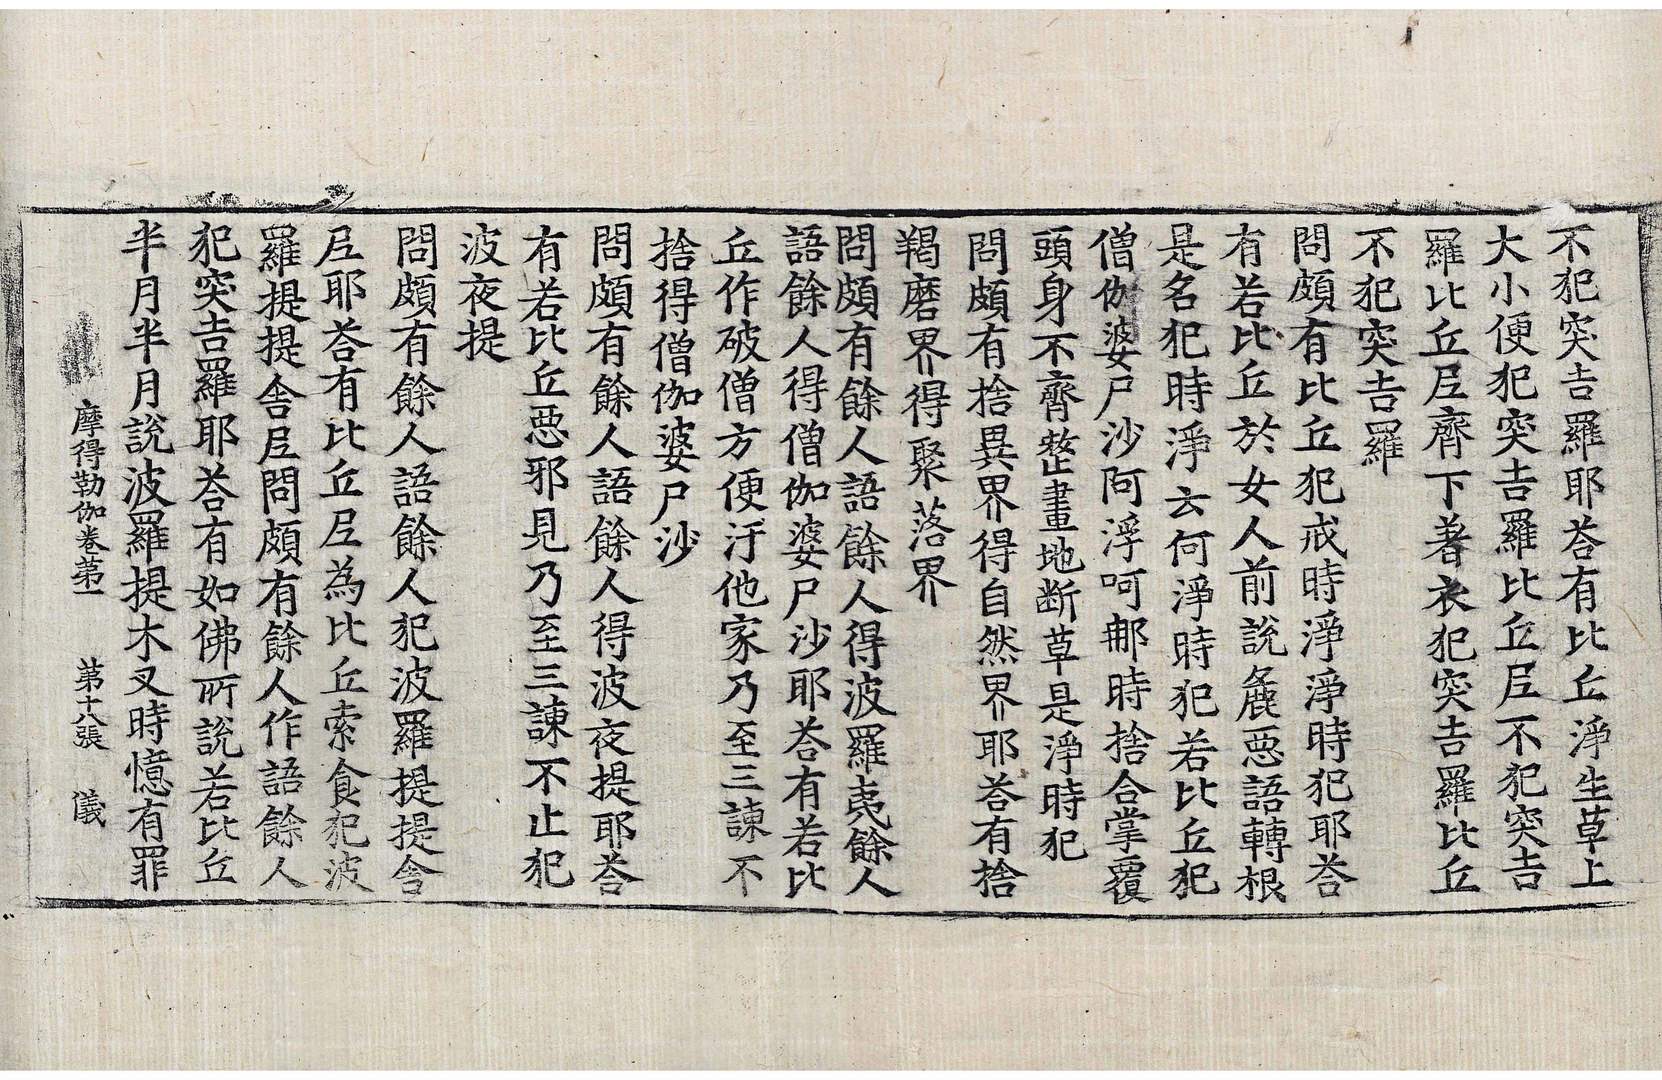 不犯突吉羅耶荅有比丘淨生草上
大小便犯突吉羅比丘尼不犯突吉
羅比丘尼齊下著衣犯突吉羅比丘
不犯突吉羅
問頗有比丘犯戒時淨淨時犯耶荅
有若比丘於女人前說麁惡語轉根
是名犯時淨云何淨時犯若比丘犯
僧伽婆尸沙阿浮呵那時捨合掌覆
頭身不齊整畫地断草是淨時犯
問頗有捨異界得自然界耶荅有捨
羯磨界得聚落界
問頗有餘人語餘人得波羅夷餘人
語餘人得僧伽婆尸沙耶荅有若比
丘作破僧方便汙他家乃至三諫不
捨得僧伽婆尸沙
問頗有餘人語餘人得波夜提耶荅
有若比丘惡邪見乃至三諫不止犯
波夜提
問頗有餘人語餘人犯波羅提提舍
尼耶荅有比丘尼為比丘索食犯波
羅提提舍尼問頗有餘人作語餘人
犯突吉羅耶荅有如佛所說若比丘
半月半月說波羅提木叉時憶有罪
摩得勒伽卷第一 第十八張 儀